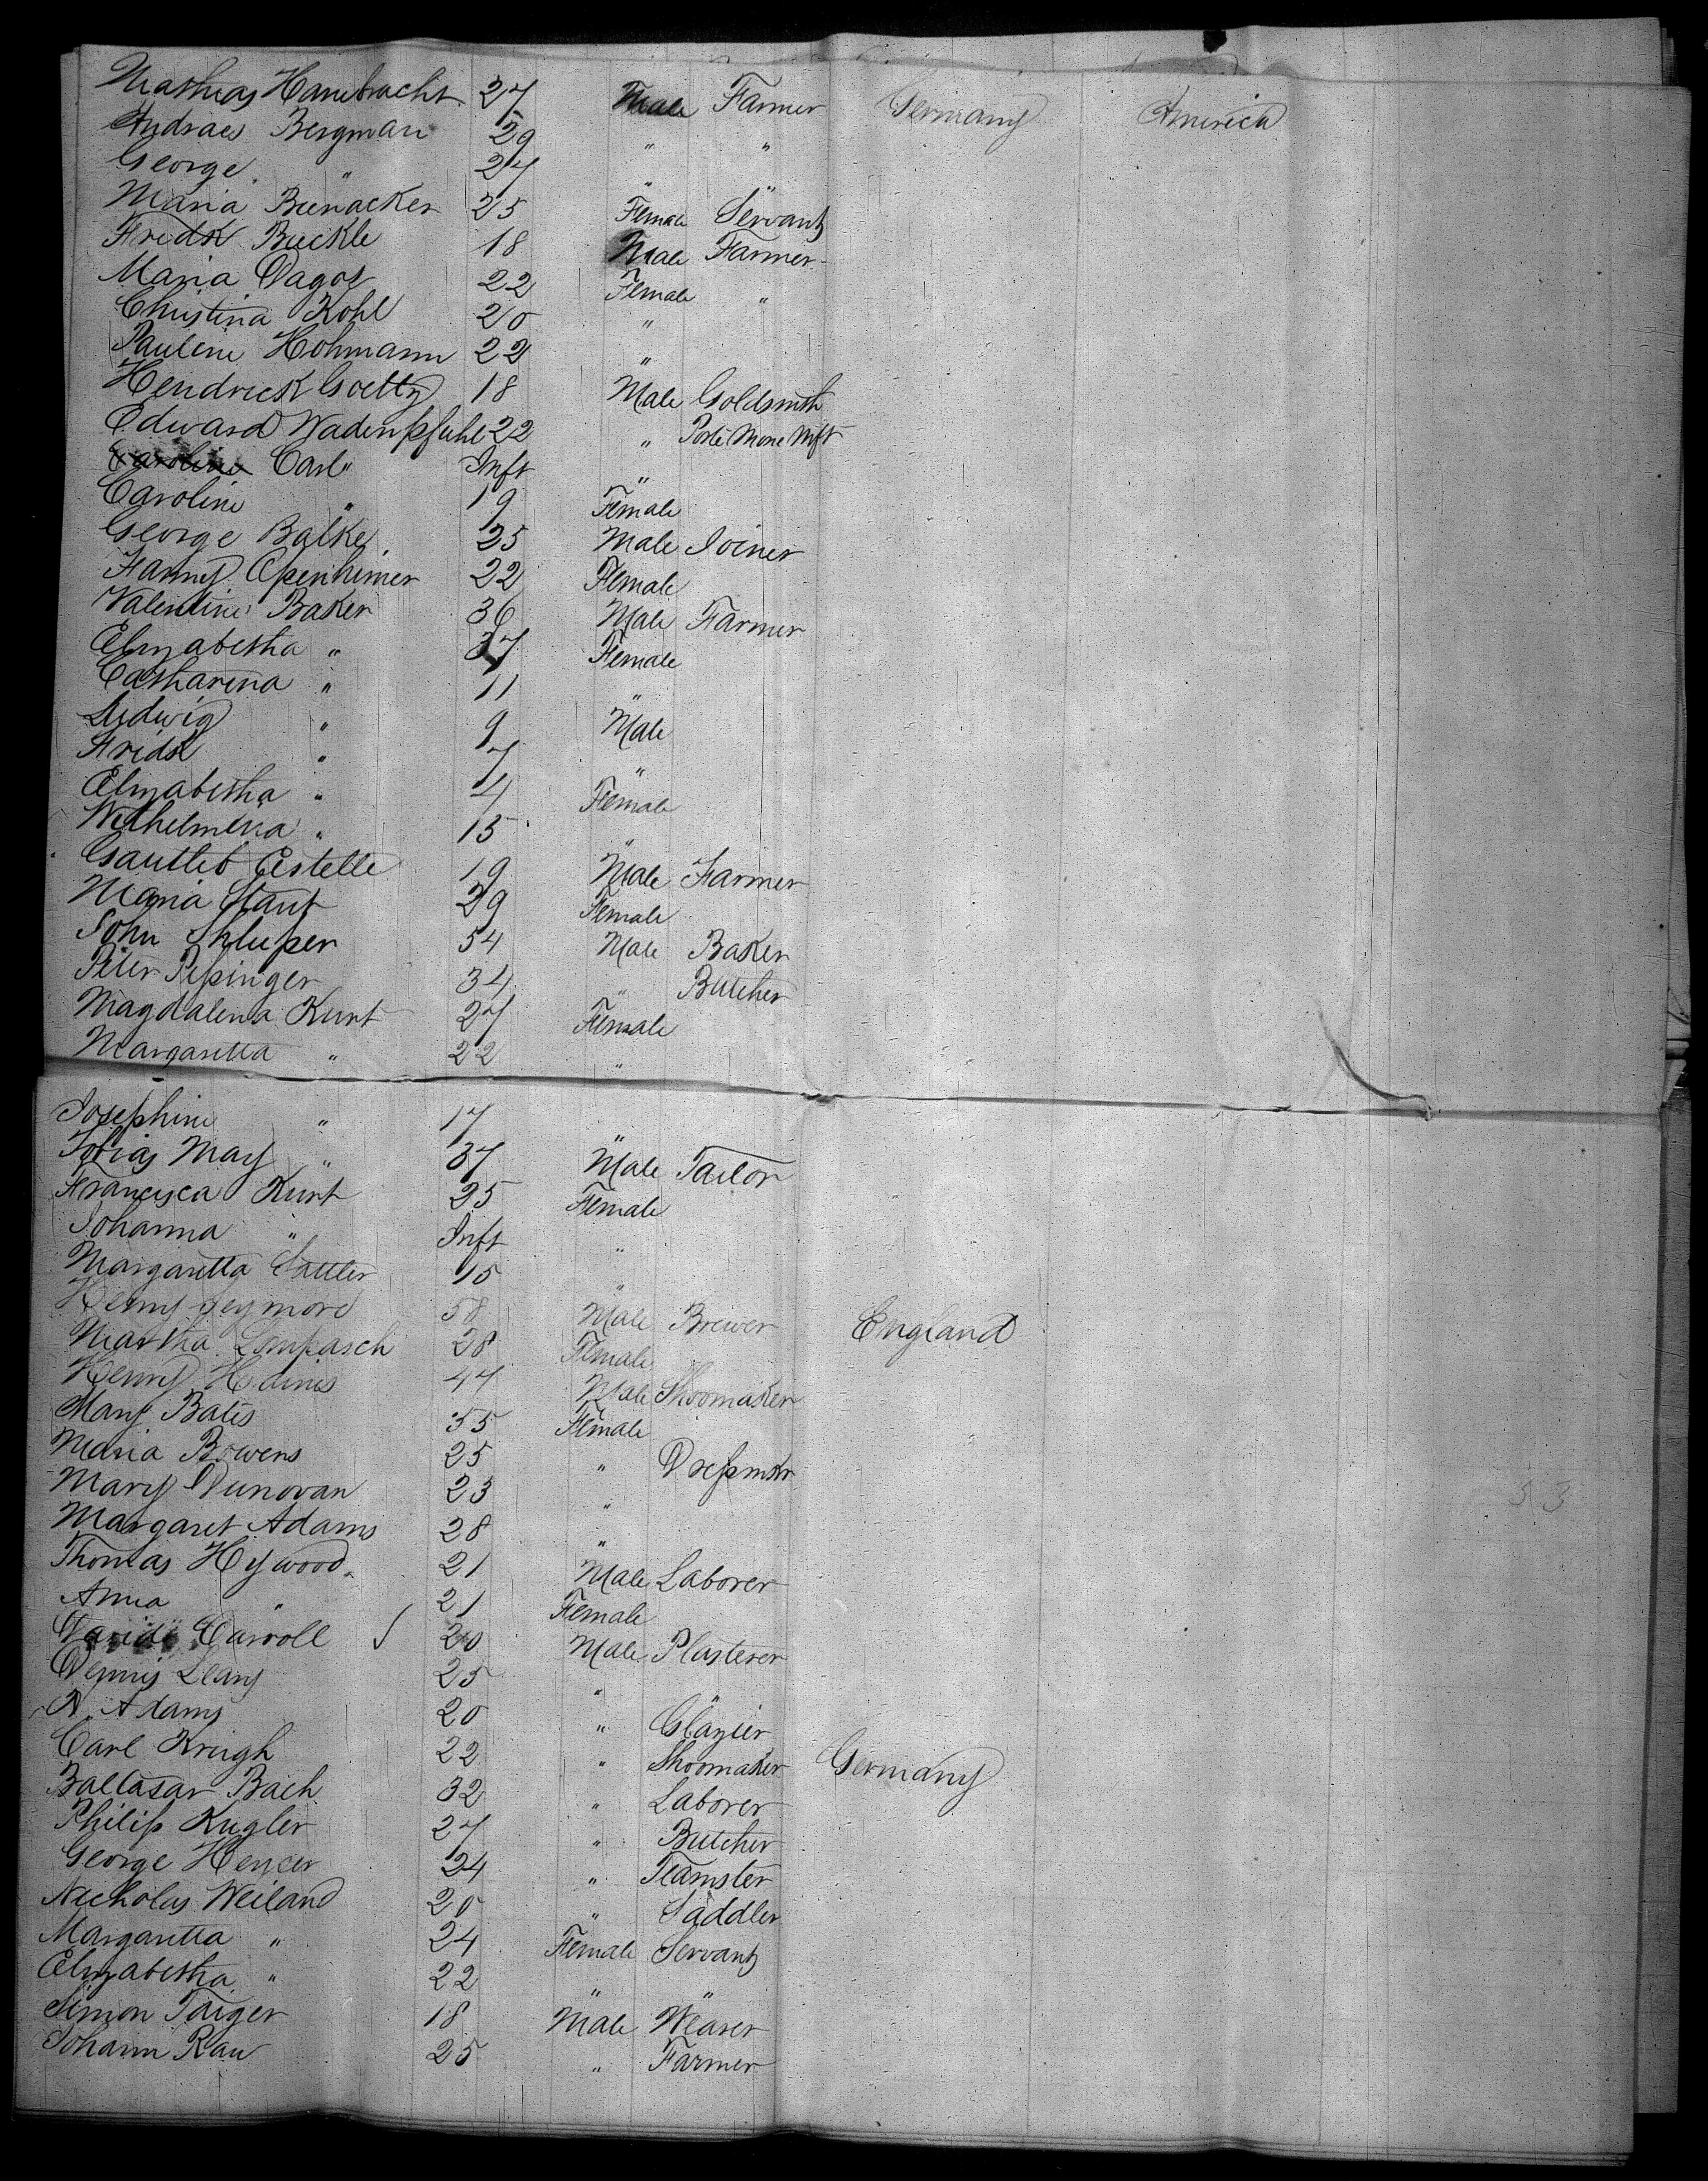 Mathias Hambracht 27 Male Farmer Germany America
Andraes Bergman 29 " "
George " 27 " "
Maria Bienacker 25 Female Servant
Fredk Buckle 18 Male Farmer
Maria Dagos 22 Female "
Christina Kohl 20 "
Pauline Hohmann 22 "
Hendrick Goetty 18 Male Goldsmith
Edward Wadenpfuhl 22 " Porte Mone Mft
Caroline Carl " Inft "
Caroline " 19 Female
George Balke 25 Male Joiner
Fanny Openhimer 22 Female
Valentine Baker 36 Male Farmer
Elizabetha " 37 Female
Catharina " 11 "
Ludwig " 9 Male
Fridk " 7 "
Elizabetha " 4 Female
Wilhelmina " 15 "
Gautleb Estelle 19 Male Farmer
Maria Staut 29 Female
John Shluper 54 Male Baker
Peter Pessinger 34 " Butcher
Magdalena Kunt 27 Female
Margaretta " 22 "
Josephine " 17 "
Tobias May " 37 Male Tailor
Francisca Kunt 25 Female
Johanna " Inft "
Margaretta Sattler 15 "
Henry Seymore 58 Male Brewer England
Martha Limpasch 28 Female
Henry Haines 47 Male Shoomaker
Mary Bates 55 Female
Maria Bowens 25 " Dressmkr
Mary Dunovan 23 "
Margaret Adams 28 "
Thomas Heywood 21 Male Laborer
Anna " 21 Female
David Carroll 20 Male Plasterer
Dennis Leary 25 " "
A. Adams 20 " Glazier
Carl Krugh 22 " Shoomaker Germany
Baltasar Bach 32 " Laborer
Philip Kugler 27 " Butcher
George Hencer 24 " Teamster
Nicholas Weiland 20 " Saddler
Margaretta " 24 Female Servant
Elizabetha " 22 " "
Simon Taiger 18 Male Weaver
Johann Rau 25 " Farmer
53